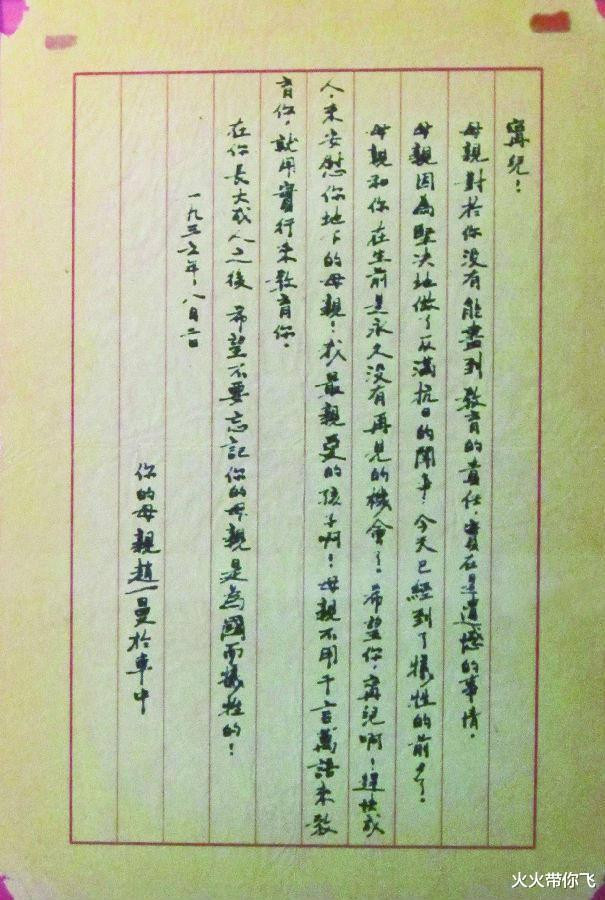 甯兒！
母親對於你沒有能盡到教育的責任，實在是遺憾的事情。
母親因為堅決地做了反滿抗日的鬭爭，今天已經到了犧牲的前夕了。
母親和你在生前是永久沒有再見的機會了。希望你，甯兒啊！趕快成
人，來安慰你地下的母親！我最親愛的孩子啊！母親不用千言萬語來教
育你，就用實行來教育你。
在你長大成人之後，希望不要忘記你的母親是為國而犧牲的！
一九三六年，八月二日
你的母親趙一曼於車中
火火带你飞